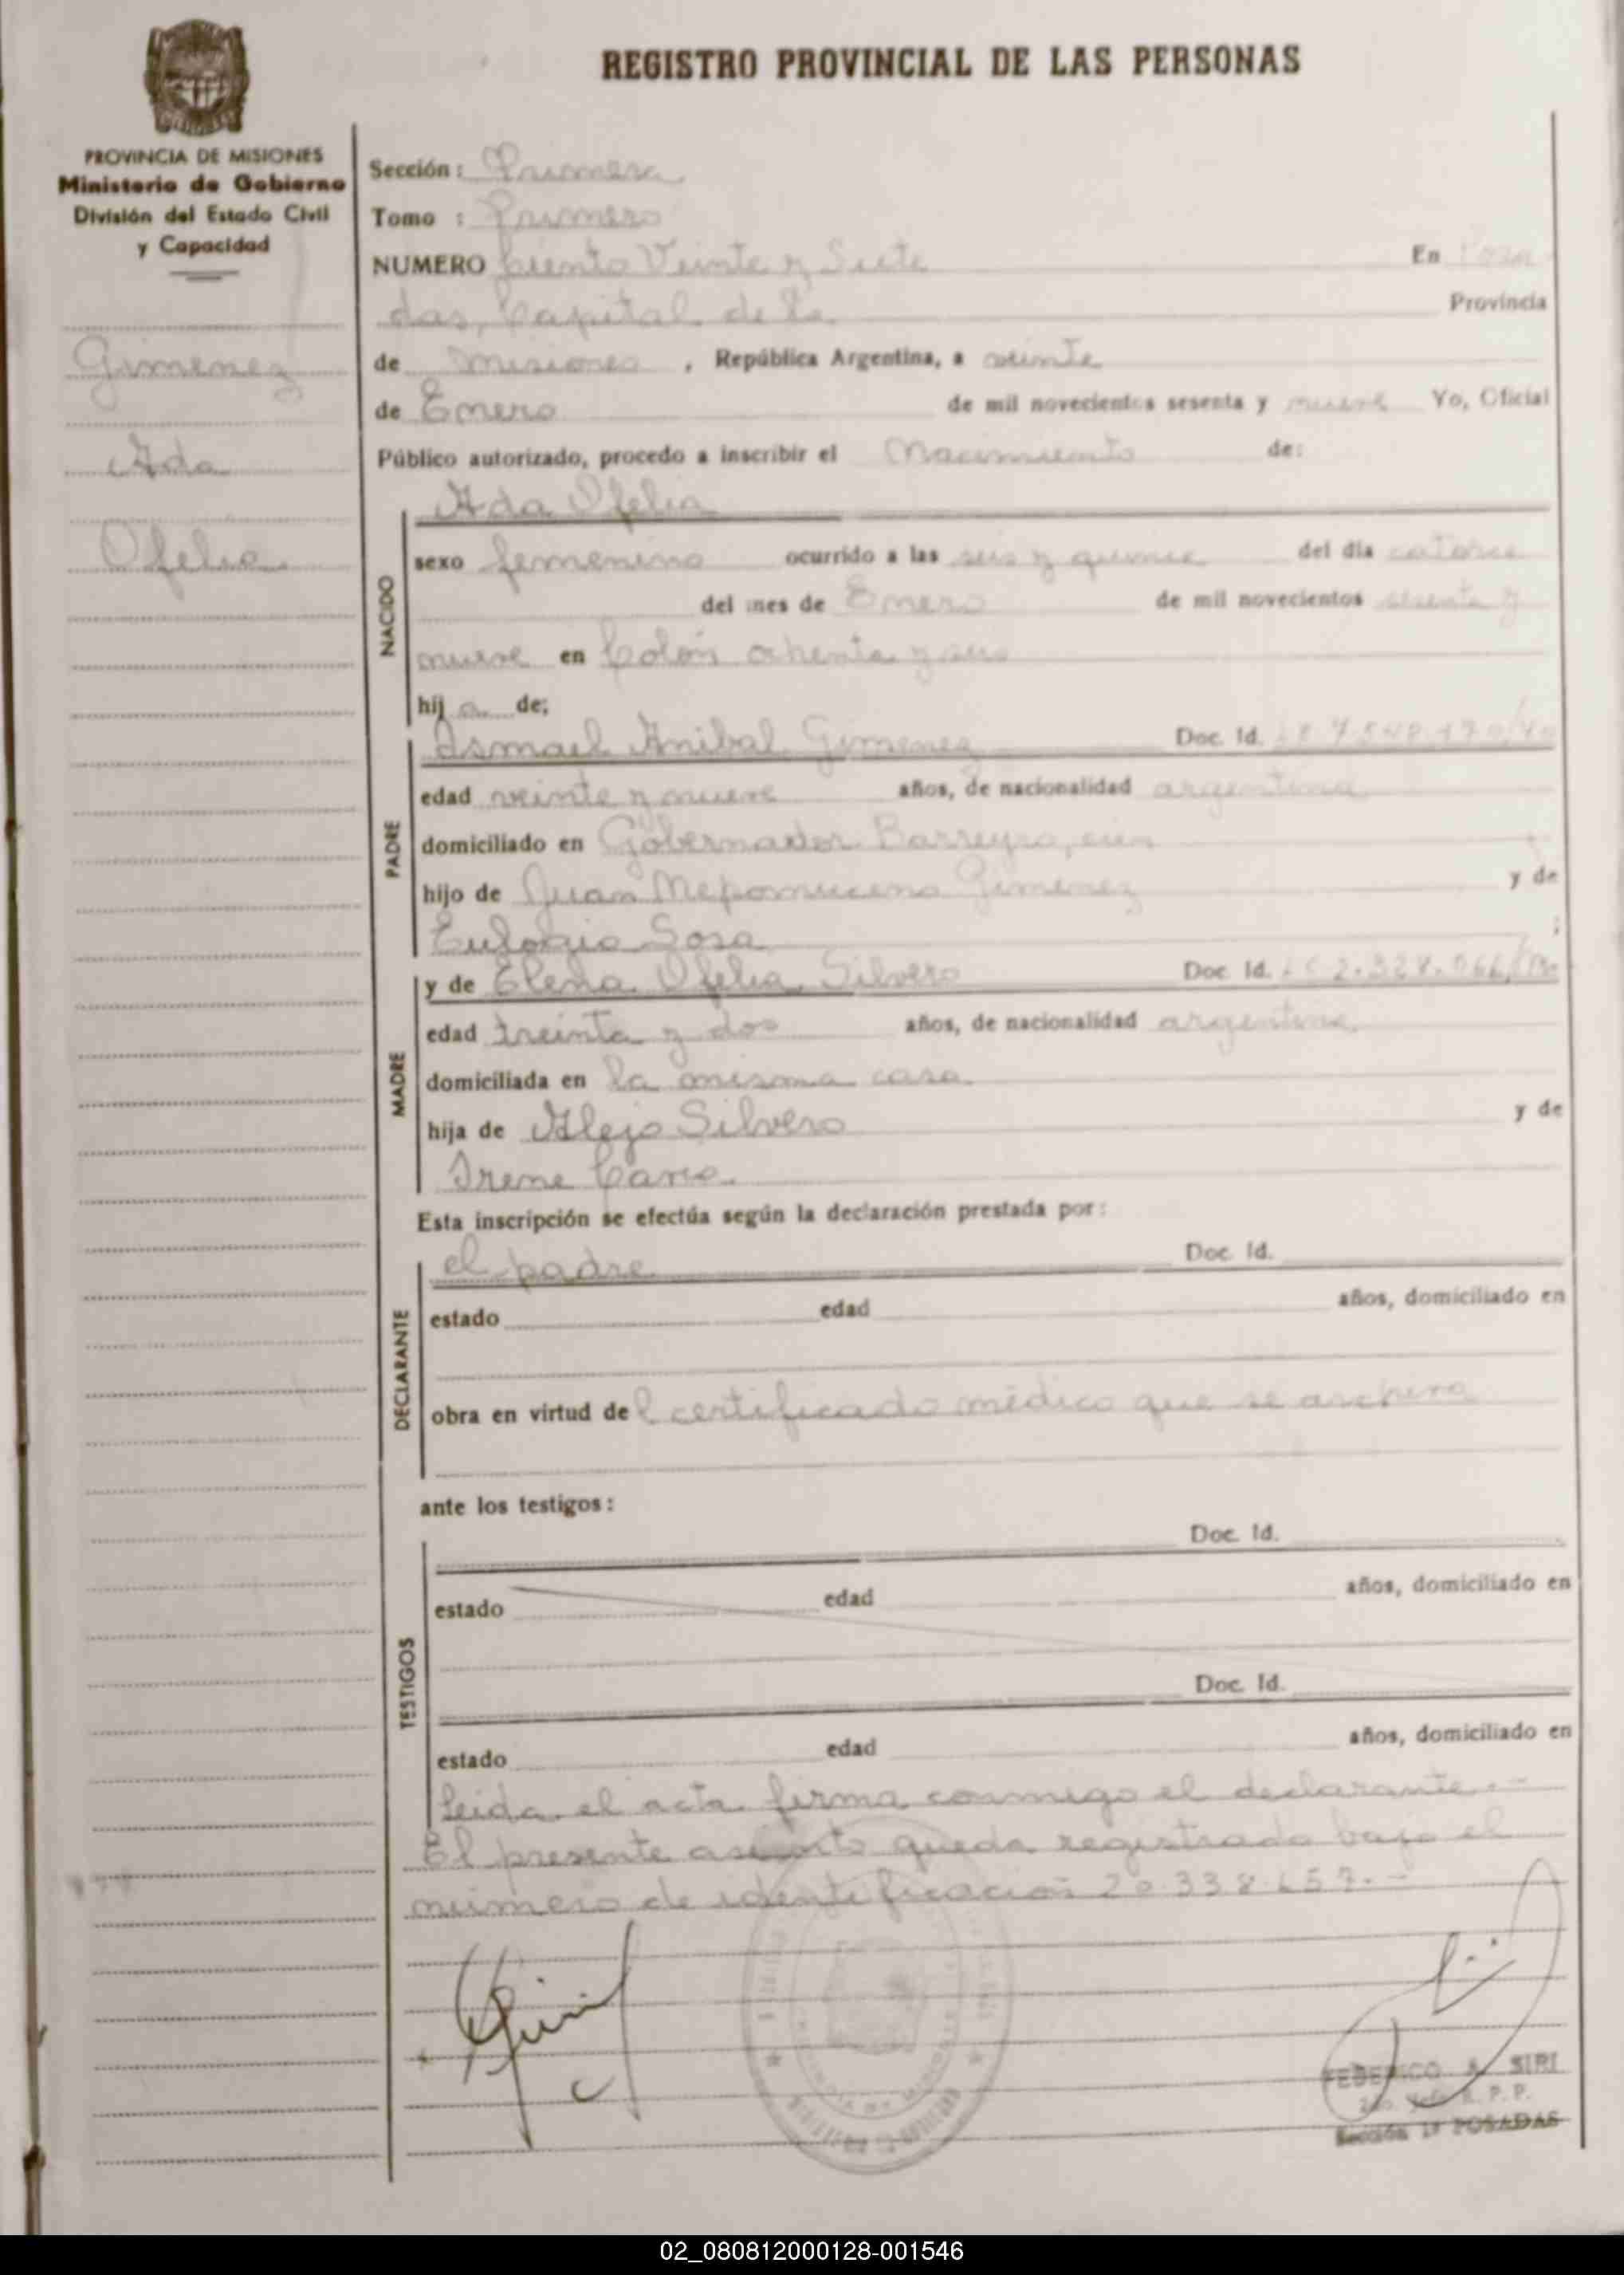 REGISTRO PROVINCIAL DE LAS PERSONAS
PROVINCIA DE MISIONES
Ministerio de Gobierno
División del Estado Civil
y Capacidad
Gimenez
Ada
Ofelia
Sección: Primera
Tomo : Primero
NUMERO Ciento Veinte y Siete En Posa
das, Capital de la Provincia
de Misiones, República Argentina, a veinte
de Enero de mil novecientos sesenta y nueve Yo, Oficial
Público autorizado, procedo a inscribir el Nacimiento de:
NACIDO
Ada Ofelia
sexo femenino ocurrido a las seis y quince del día catorce
del mes de Enero de mil novecientos sesenta y
nueve en Colón ochenta y seis
hij a de;
PADRE
Ismael Anibal Gimenez Doc. Id.
edad veinte y nueve años, de nacionalidad argentina
domiciliado en Gobernador Barreyro, cien
hijo de Juan Nepomuceno Gimenez y de
Eulogia Sosa ;
MADRE
y de Elena Ofelia Silvero Doc. Id.
edad treinta y dos años, de nacionalidad argentina
domiciliada en la misma casa
hija de Alejo Silvero y de
Irene
Esta inscripción se efectúa según la declaración prestada por:
DECLARANTE
el padre Doc. Id.
estado edad años, domiciliado en
obra en virtud del certificado médico que se archiva
ante los testigos:
TESTIGOS
Doc. Id.
estado edad años, domiciliado en
Doc. Id.
estado edad años, domiciliado en
Leida el acta firma conmigo el declarante.-
El presente asiento queda registrado bajo el
número de identificación 20.338.657.-
FEDERICO A. SIRI
R. P. P.
Sección 1ª POSADAS
02_080812000128-001546